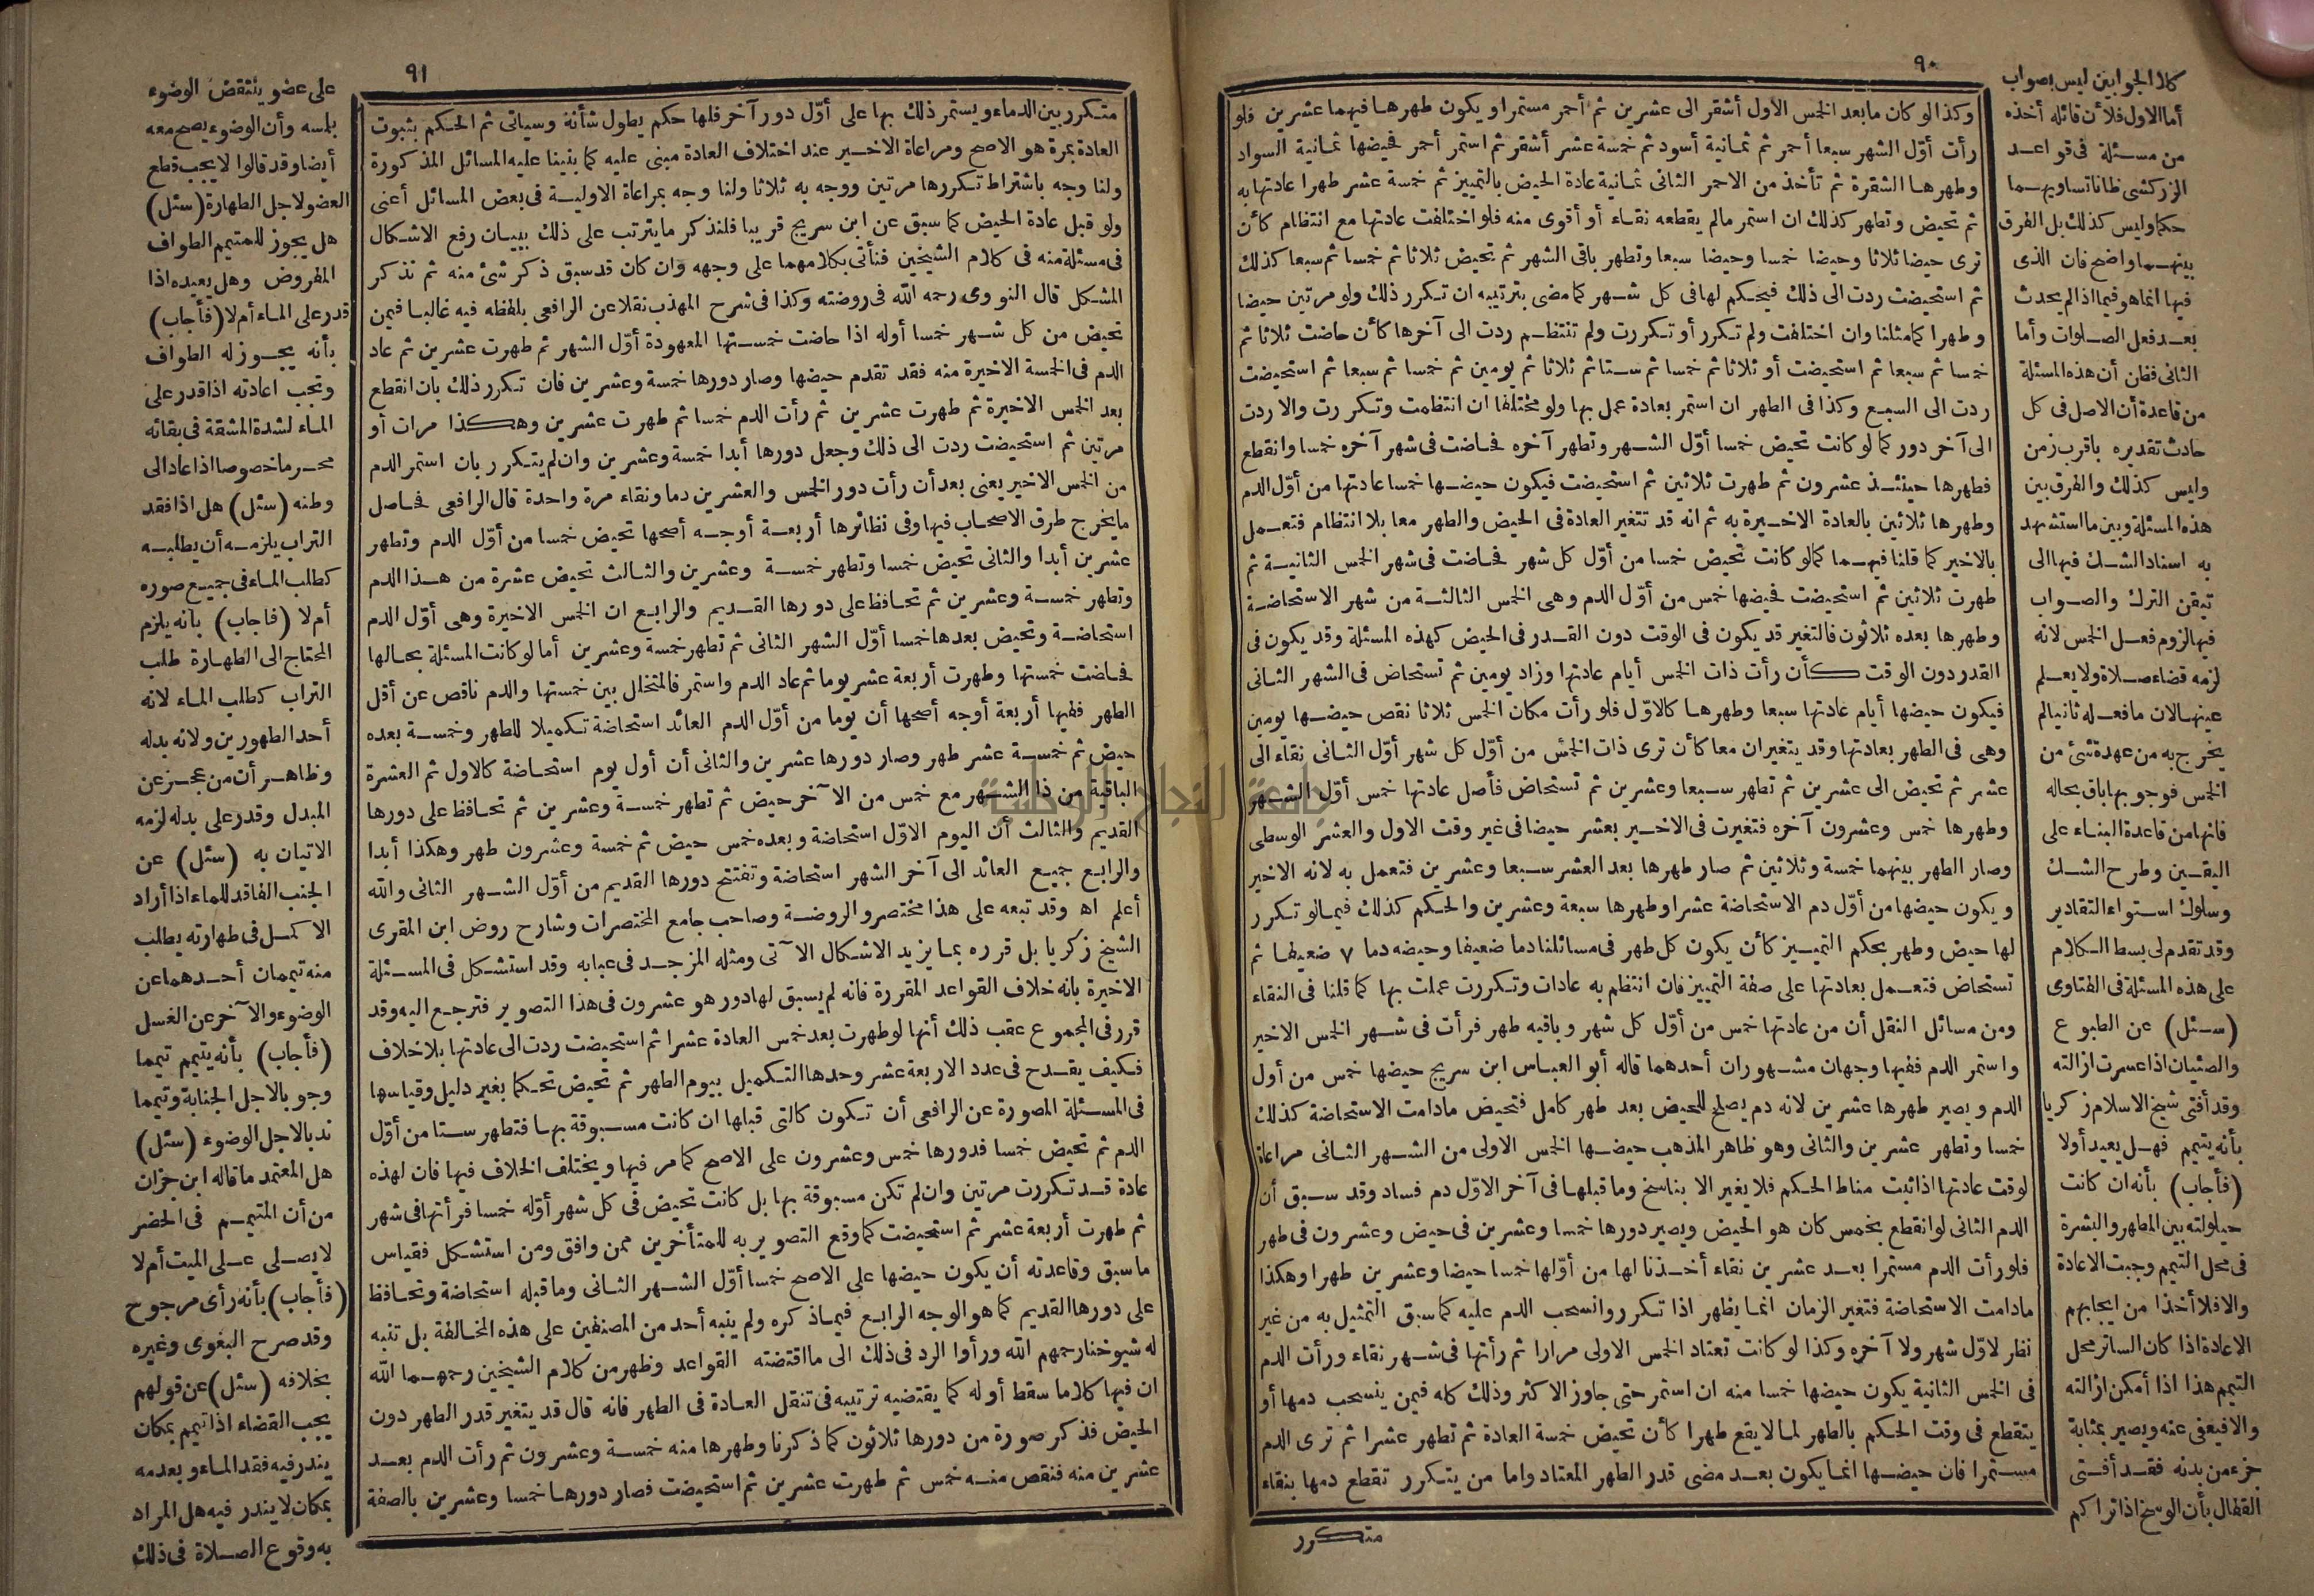 ٩٠
وكذا لو كان ما بعد الخمس الاول أشقر الى عشرين ثم أحمر مستمرا و يكون طهرها فيهما عشرين فلو
رأت أوّل الشهر سبعا أحمر ثم ثمانية أسود ثم خمسة عشر أشقر ثم استمر أحمر فحيضها ثمانية السواد
وطهرها الشقرة ثم تأخذ من الاحمر الثانى ثمانية عادة الحيض بالتمييز ثم خمسة عشر طهرا عادتها به
ثم تحيض وتطهر كذلك ان استمر مالم يقطعه نقاء أو أقوى منه فلو اختلفت عادتها مع انتظام كأن
ترى حيضا ثلاثا وحيضا خمسا وحيضا سبعا وتطهر باقى الشهر ثم تحيض ثلاثا ثم خمسا ثم سبعا كذلك
ثم استحيضت ردت الى ذلك فيحكم لها فى كل شهر كما مضى بترتيبه ان تكرر ذلك ولو مرتين حيضا
وطهرا كما مثلنا وان اختلفت ولم تكرر أو تكررت ولم تنتظم ردت الى آخرها كأن حاضت ثلاثا ثم
خمسا ثم سبعا ثم استحيضت أو ثلاثا ثم خمسا ثم ستا ثم ثلاثا ثم يومين ثم خمسا ثم سبعا ثم استحيضت
ردت الى السبع وكذا فى الطهر ان استمر بعادة عمل بها ولو مختلفا ان انتظمت وتكررت والا ردت
الى آخر دور كما لو كانت تحيض خمسا أوّل الشهر وتطهر آخره فحاضت فى شهر آخره خمسا وانقطع
فطهرها حينئذ عشرون ثم طهرت ثلاثين ثم استحيضت فيكون حيضها خمسا عادتها من أوّل الدم
وطهرها ثلاثين بالعادة الاخيرة به ثم انه قد تتغير العادة فى الحيض والطهر معا بلا انتظام فتعمل
بالاخير كما قلنا فيهما كما لو كانت تحيض خمسا من أوّل كل شهر فحاضت فى شهر الخمس الثانية ثم
طهرت ثلاثين ثم استحيضت فحيضها خمس من أوّل الدم وهى الخمس الثالثة من شهر الاستحاضة
وطهرها بعده ثلاثون فالتغير قد يكون فى الوقت دون القدر فى الحيض كهذه المسئلة وقد يكون فى
القدر دون الوقت كأن رأت ذات الخمس أيام عادتها وزاد يومين ثم تستحاض فى الشهر الثانى
فيكون حيضها أيام عادتها سبعا وطهرها كالاوّل فلو رأت مكان الخمس ثلاثا نقص حيضها يومين
وهى فى الطهر بعادتها وقد يتغيران معا كأن ترى ذات الخمس من أوّل كل شهر أوّل الثانى نقاء الى
عشر ثم تحيض الى عشرين ثم تطهر سبعا وعشرين ثم تستحاض فأصل عادتها خمس أوّل الشهر
وطهرها خمس وعشرون آخره فتغيرت فى الاخير بعشر حيضا فى غير وقت الاول والعشر الوسطى
وصار الطهر بينهما خمسة وثلاثين ثم صار طهرها بعد العشر سبعا وعشرين فتعمل به لانه الاخير
ويكون حيضها من أوّل دم الاستحاضة عشرا وطهرها سبعة وعشرين والحكم كذلك فيما لو تكرر
لها حيض وطهر بحكم التمييز كأن يكون كل طهر فى مسائلنا دما ضعيفا وحيضه دما ٧ ضعيفا ثم
تستحاض فتعمل بعادتها على صفة التمييز فان انتظم به عادات وتكررت عملت بها كما قلنا فى النقاء
ومن مسائل النقل أن من عادتها خمس من أوّل كل شهر وباقيه طهر فرأت فى شهر الخمس الاخير
واستمر الدم ففيها وجهان مشهوران أحدهما قاله أبو العباس ابن سريج حيضها خمس من أول
الدم و يصير طهرها عشرين لانه دم يصلح للحيض بعد طهر كامل فتحيض مادامت الاستحاضة كذلك
خمسا وتطهر عشرين والثانى وهو ظاهر المذهب حيضها الخمس الاولى من الشهر الثانى مراعاة
لوقت عادتها اذا ثبت مناط الحكم فلا يغير الا بناسخ وما قبلها فى آخر الاوّل دم فساد وقد سبق أن
الدم الثانى لو انقطع بخمس كان هو الحيض ويصير دورها خمسا وعشرين فى حيض وعشرون فى طهر
فلو رأت الدم مستمرا بعد عشرين نقاء أخذنا لها من أوّلها خمسا حيضا وعشرين طهرا وهكذا
مادامت الاستحاضة فتغير الزمان انما يظهر اذا تكرر وانسحب الدم عليه كما سبق التمثيل به من غير
نظر لاوّل شهر ولا آخره وكذا لو كانت تعتاد الخمس الاولى مرارا ثم رأتها فى شهر نقاء ورأت الدم
فى الخمس الثانية يكون حيضها خمسا منه ان استمر حتى جاوز الاكثر وذلك كله فيمن ينسحب دمها أو
يتقطع فى وقت الحكم بالطهر لما لا يقع طهرا كأن تحيض خمسة العادة ثم تطهر عشرا ثم ترى الدم
مستمرا فان حيضها انما يكون بعد مضى قدر الطهر المعتاد واما من يتكرر تقطع دمها بنقاء
متكرر
كلا الجوابين ليس بصواب
أما الاول فلأن قائله أخذه
من مسئلة فى قواعد
الزركشى ظانا تساويهما
حكما وليس كذلك بل الفرق
بينهما واضح فان الذى
فيها انما هو فيما اذا لم يحدث
بعد فعل الصلوات وأما
الثانى فظن أن هذه المسئلة
من قاعدة أن الاصل فى كل
حادث تقديره باقرب زمن
وليس كذلك والفرق بين
هذه المسئلة وبين ما استشهد
به اسناد الشك فيها الى
تيقن الترك والصواب
فيها لزوم فعل الخمس لانه
لزمه قضاء صلاة ولا يعلم
عينها لان ما فعله ثانيا لم
يخرج به من عهدة شئ من
الخمس فوجوبها باق بحاله
فانها من قاعدة البناء على
اليقين وطرح الشك
وسلوك استواء التقادير
وقد تقدم لى بسط الكلام
على هذه المسئلة فى الفتاوى
(سئل) عن الطبوع
والصئبان اذا عسرت ازالته
وقد أفتى شيخ الاسلام زكريا
بأنه يتيمم فهل يعيد أولا
(فأجاب) بأنه ان كانت
حيلولته بين المطهر والبشرة
فى محل التيمم وجبت الاعادة
والا فلا أخذا من ايجابهم
الاعادة اذا كان الساتر محل
التيمم هذا اذا أمكن ازالته
والا فيعفى عنه ويصير بمثابة
جزء من بدنه فقد أفتى
القفال بأن الوسخ اذا تراكم
٩١
متكرر بين الدماء ويستمر ذلك بها على أوّل دور آخر فلها حكم يطول شأنه وسيأتى ثم الحكم بثبوت
العادة بمرة هو الاصح ومراعاة الاخير عند اختلاف العادة مبنى عليه كما بنينا عليه المسائل المذكورة
ولنا وجه باشتراط تكررها مرتين ووجه به ثلاثا ولنا وجه بمراعاة الاولية فى بعض المسائل أعنى
ولو قبل عادة الحيض كما سبق عن ابن سريج قريبا فلنذكر ما يترتب على ذلك ببيان رفع الاشكال
فى مسئلة منه فى كلام الشيخين فنأتى بكلامهما على وجهه وان كان قد سبق ذكر شئ منه ثم نذكر
المشكل قال النووى رحمه الله فى روضته وكذا فى شرح المهذب نقلا عن الرافعى بلفظه فيه غالبا فيمن
تحيض من كل شهر خمسا أوله اذا حاضت خمستها المعهودة أوّل الشهر ثم طهرت عشرين ثم عاد
الدم فى الخمسة الاخيرة منه فقد تقدم حيضها وصار دورها خمسة وعشرين فان تكرر ذلك بان انقطع
بعد الخمس الاخيرة ثم طهرت عشرين ثم رأت الدم خمسا ثم طهرت عشرين وهكذا مرات أو
مرتين ثم استحيضت ردت الى ذلك وجعل دورها أبدا خمسة وعشرين وان لم يتكرر بان استمر الدم
من الخمس الاخير يعنى بعد أن رأت دور الخمس والعشرين دما ونقاء مرة واحدة قال الرافعى فحاصل
ما يخرج طرق الاصحاب فيها وفى نظائرها أربعة أوجه أصحها تحيض خمسا من أوّل الدم وتطهر
عشرين أبدا والثانى تحيض خمسا وتطهر خمسة وعشرين والثالث تحيض عشرة من هذا الدم
وتطهر خمسة وعشرين ثم تحافظ على دورها القديم والرابع ان الخمس الاخيرة وهى أوّل الدم
استحاضة وتحيض بعدها خمسا أوّل الشهر الثانى ثم تطهر خمسة وعشرين أما لو كانت المسئلة بحالها
فحاضت خمستها وطهرت أربعة عشر يوما ثم عاد الدم واستمر فالمتخلل بين خمستها والدم ناقص عن أقل
الطهر ففيها أربعة أوجه أصحها أن يوما من أوّل الدم العائد استحاضة تكميلا للطهر وخمسة بعده
حيض ثم خمسة عشر طهر وصار دورها عشرين والثانى أن أول يوم استحاضة كالاول ثم العشرة
الباقية من ذا الشهر مع خمس من الآخر حيض ثم تطهر خمسة وعشرين ثم تحافظ على دورها
القديم والثالث أن اليوم الاوّل استحاضة وبعده خمس حيض ثم خمسة وعشرون طهر وهكذا أبدا
والرابع جميع العائد الى آخر الشهر استحاضة وتفتتح دورها القديم من أوّل الشهر الثانى والله
أعلم اه وقد تبعه على هذا مختصرو الروضة وصاحب جامع المختصرات وشارح روض ابن المقرى
الشيخ زكريا بل قرره بما يزيد الاشكال الآتى ومثله المزجد فى عبابه وقد استشكل فى المسئلة
الاخيرة بانه خلاف القواعد المقررة فانه لم يسبق لها دور هو عشرون فى هذا التصوير فترجع اليه وقد
قرر فى المجموع عقب ذلك أنها لو طهرت بعد خمس العادة عشرا ثم استحيضت ردت الى عادتها بلا خلاف
فكيف يقدح فى عدد الاربعة عشر وحدها التكميل بيوم الطهر ثم تحيض تحكما بغير دليل وقياسها
فى المسئلة المصورة عن الرافعى أن تكون كالتى قبلها ان كانت مسبوقة بها فتطهر ستا من أوّل
الدم ثم تحيض خمسا فدورها خمس وعشرون على الاصح كما مر فيها ويختلف الخلاف فيها فان لهذه
عادة قد تكررت مرتين وان لم تكن مسبوقة بها بل كانت تحيض فى كل شهر أوّله خمسا فرأتها فى شهر
ثم طهرت أربعة عشر ثم استحيضت كما وقع التصوير به للمتأخرين ممن وافق ومن استشكل فقياس
ما سبق وقاعدته أن يكون حيضها على الاصح خمسا أوّل الشهر الثانى وما قبله استحاضة وتحافظ
على دورها القديم كما هو الوجه الرابع فيما ذكره ولم ينبه أحد من المصنفين على هذه المخالفة بل تنبه
له شيوخنا رحمهم الله ورأوا الرد فى ذلك الى ما اقتضته القواعد وظهر من كلام الشيخين رحمهما الله
ان فيها كلاما سقط أوله كما يقتضيه ترتيبه فى تنقل العادة فى الطهر فانه قال قد يتغير قدر الطهر دون
الحيض فذكر صورة من دورها ثلاثون كما ذكرنا وطهرها منه خمسة وعشرون ثم رأت الدم بعد
عشرين منه فنقص منه خمس ثم طهرت عشرين ثم استحيضت فصار دورها خمسا وعشرين بالصفة
على عضو ينتقض الوضوء
بلمسه وأن الوضوء يصح معه
أيضا وقد قالوا لا يجب قطع
العضو لاجل الطهارة (سئل)
هل يجوز للمتيمم الطواف
المفروض وهل يعيده اذا
قدر على الماء أم لا (فأجاب)
بأنه يجوز له الطواف
وتجب اعادته اذا قدر على
الماء لشدة المشقة فى بقائه
محرما خصوصا اذا عاد الى
وطنه (سئل) هل اذا فقد
التراب يلزمه أن يطلبه
كطلب الماء فى جميع صوره
أم لا (فاجاب) بانه يلزم
المحتاج الى الطهارة طلب
التراب كطلب الماء لانه
أحد الطهورين ولانه بدله
وظاهر أن من عجز عن
المبدل وقدر على بدله لزمه
الاتيان به (سئل) عن
الجنب الفاقد للماء اذا أراد
الاكمل فى طهارته يطلب
منه تيممان أحدهما عن
الوضوء والآخر عن الغسل
(فأجاب) بأنه يتيمم تيمما
وجوبا لاجل الجنابة وتيمما
ندبا لاجل الوضوء (سئل)
هل المعتمد ما قاله ابن خزان
من أن المتيمم فى الحضر
لا يصلى على الميت أم لا
(فأجاب) بأنه رأى مرجوح
وقد صرح البغوى وغيره
بخلافه (سئل) عن قولهم
يجب القضاء اذا تيمم بمكان
يندر فيه فقد الماء وبعدمه
بمكان لا يندر فيه هل المراد
به وقوع الصلاة فى ذلك
جامعة النجاح الوطنية